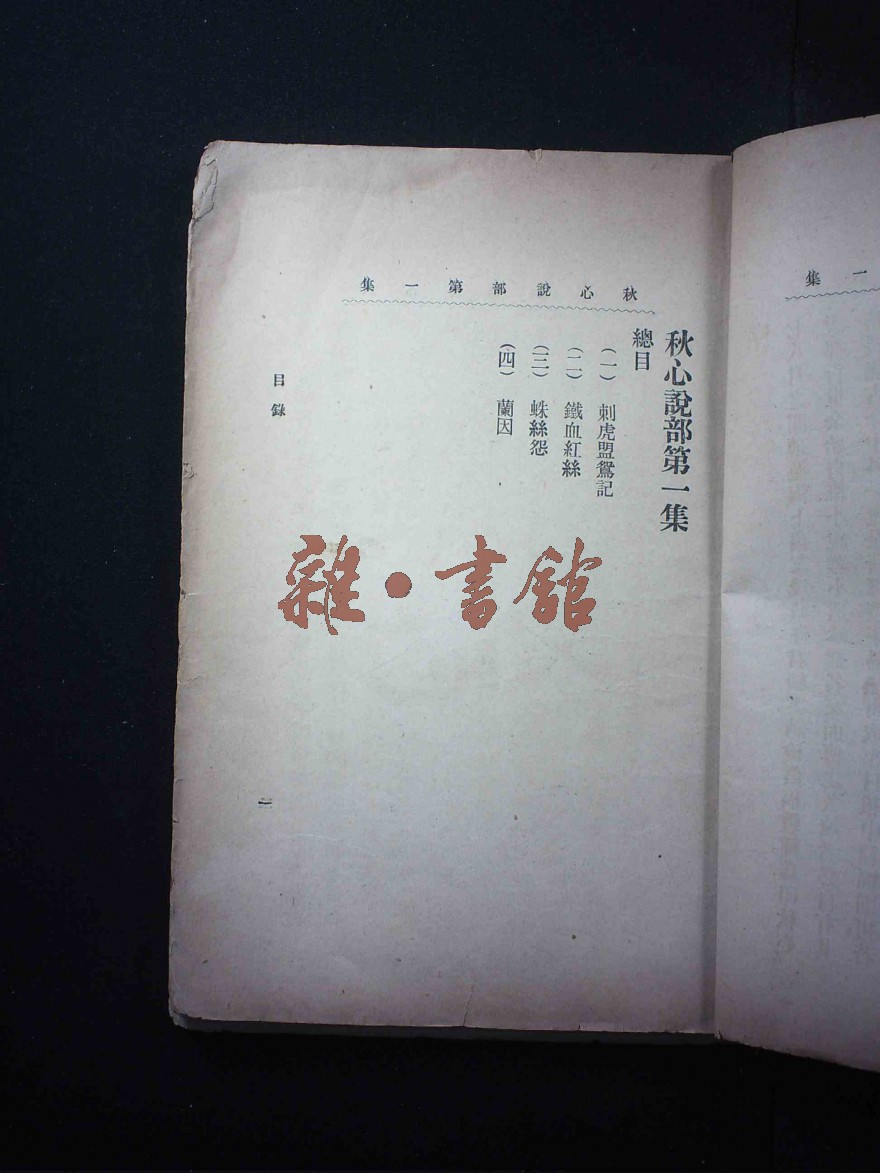 秋心說部第一集
秋心說部第一集
總目
(一) 刺虎盟鴛記
(二) 鐵血紅絲
(三) 蛛絲怨
(四) 蘭因
目錄
一集
雜·書館